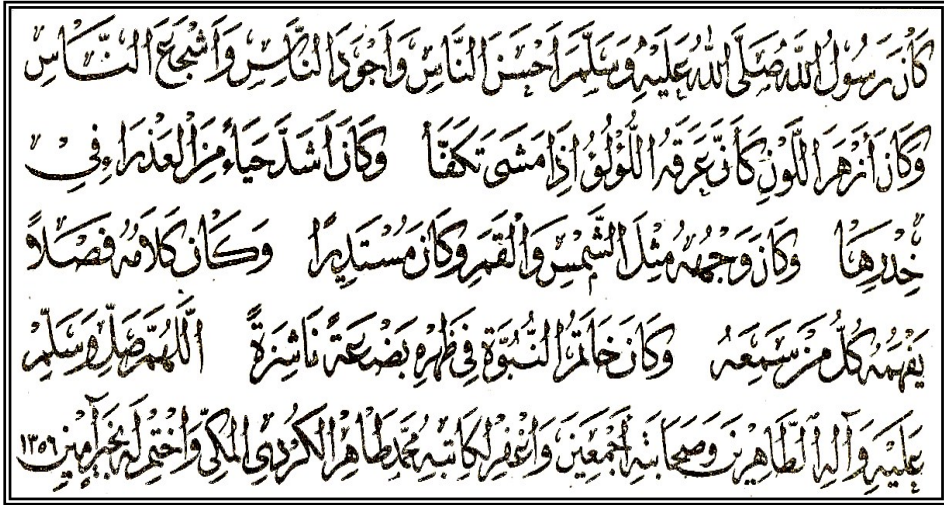 كَانَ رَسُولُ اللّٰهِ صَلَّى اللّٰهُ عَلَيْهِ وَسَلَّمَ اَحْسَنَ النَّاسِ وَاَجْوَدَ النَّاسِ وَاَشْجَعَ النَّاسِ
وَكَانَ اَزْهَرَ اللَّوْنِ كَاَنَّ عَرَقَهُ اللُّؤْلُؤُ اِذَا مَشَى تَكَفَّأَ وَكَانَ اَشَدَّ حَيَاءً مِنَ الْعَذْرَاءِ فِي
خِدْرِهَا وَكَانَ وَجْهُهُ مِثْلَ الشَّمْسِ وَالْقَمَرِ وَكَانَ مُسْتَدِيرًا وَكَانَ كَلَامُهُ فَصْلًا
يَفْهَمُهُ كُلُّ مَنْ سَمِعَهُ وَكَانَ خَاتَمُ النُّبُوَّةِ فِي ظَهْرِهِ بَضْعَةً نَاشِزَةً اللّٰهُمَّ صَلِّ وَسَلِّمْ
عَلَيْهِ وَآلِهِ الطَّاهِرِينَ وَصَحَابَتِهِ اَجْمَعِينَ وَاغْفِرْ لِكَاتِبِهِ مُحَمَّد طَاهِر الْكُرْدِي الْمَكِّي وَاخْتِمْ لَهُ بِخَيْرٍ آمِين ١٣٥٦